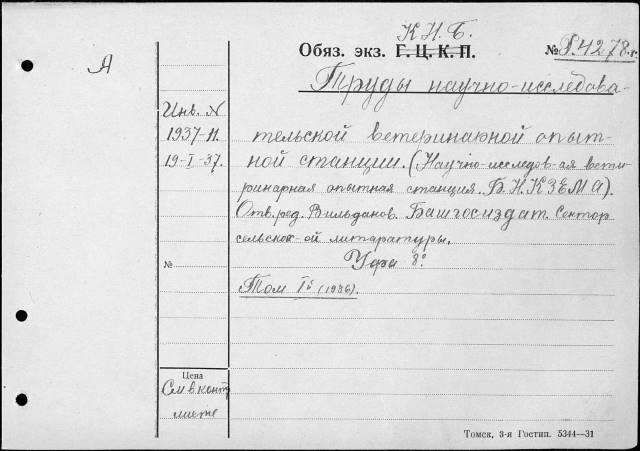 К.Н.Б.
Обяз. экз. Г. Ц. К. П. № Р.4278.г.
А
Труды научно-исследова-
Инв. №
1937-11. тельской ветеринарной опыт-
19-I-37. ной станции. (Научно-исследов-ая вете
ринарная опытная станция. Б.Н.К.ЗЕМА).
Отв. ред. Вильданов. Башгосиздат. Сектор
сельскох-ой литературы.
Уфа 8°
№
Том I (1936).
Цена
См в контр
листе
Томск, 3-я Гостип. 5344—31